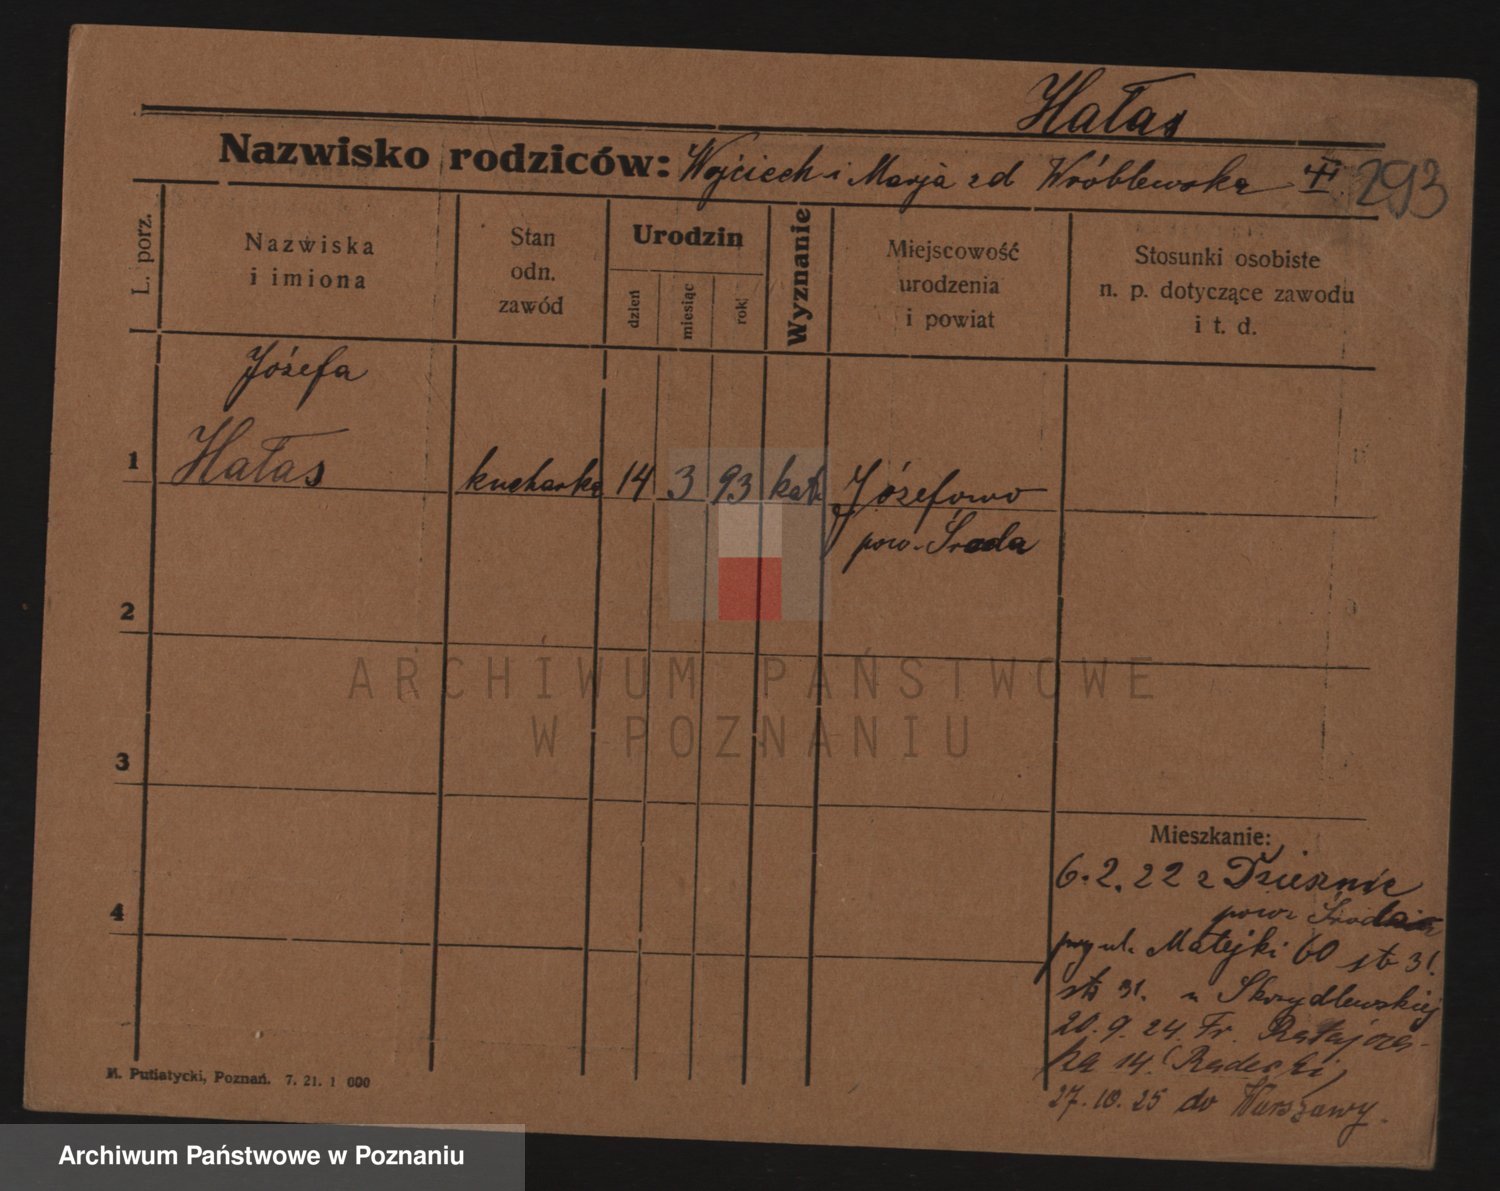 Hałas
Nazwisko rodziców: Wojciech i Marja zd Wróblewska VI 293
L. porz.
Nazwiska
i imiona
Stan
odn.
zawód
Urodzin
dzień
miesiąc
rok
Wyznanie
Miejscowość
urodzenia
i powiat
Stosunki osobiste
n. p. dotyczące zawodu
i t. d.
Józefa
1 Hałas kucharka 14 3 93 kat. Józefowo
pow. Środa
2
3
4
Mieszkanie:
6.2.22 z
pow. Środa
przy ul. Matejki 60 stb 31.
stb 31. u Skrzydlewskiej
20.9.24. Fr. Ratajcza-
ka 14. (Radecki)
27.10.25 do Warszawy.
M. Putiatycki, Poznań. 7. 21. 1 000
ARCHIWUM PAŃSTWOWE
W POZNANIU
Archiwum Państwowe w Poznaniu